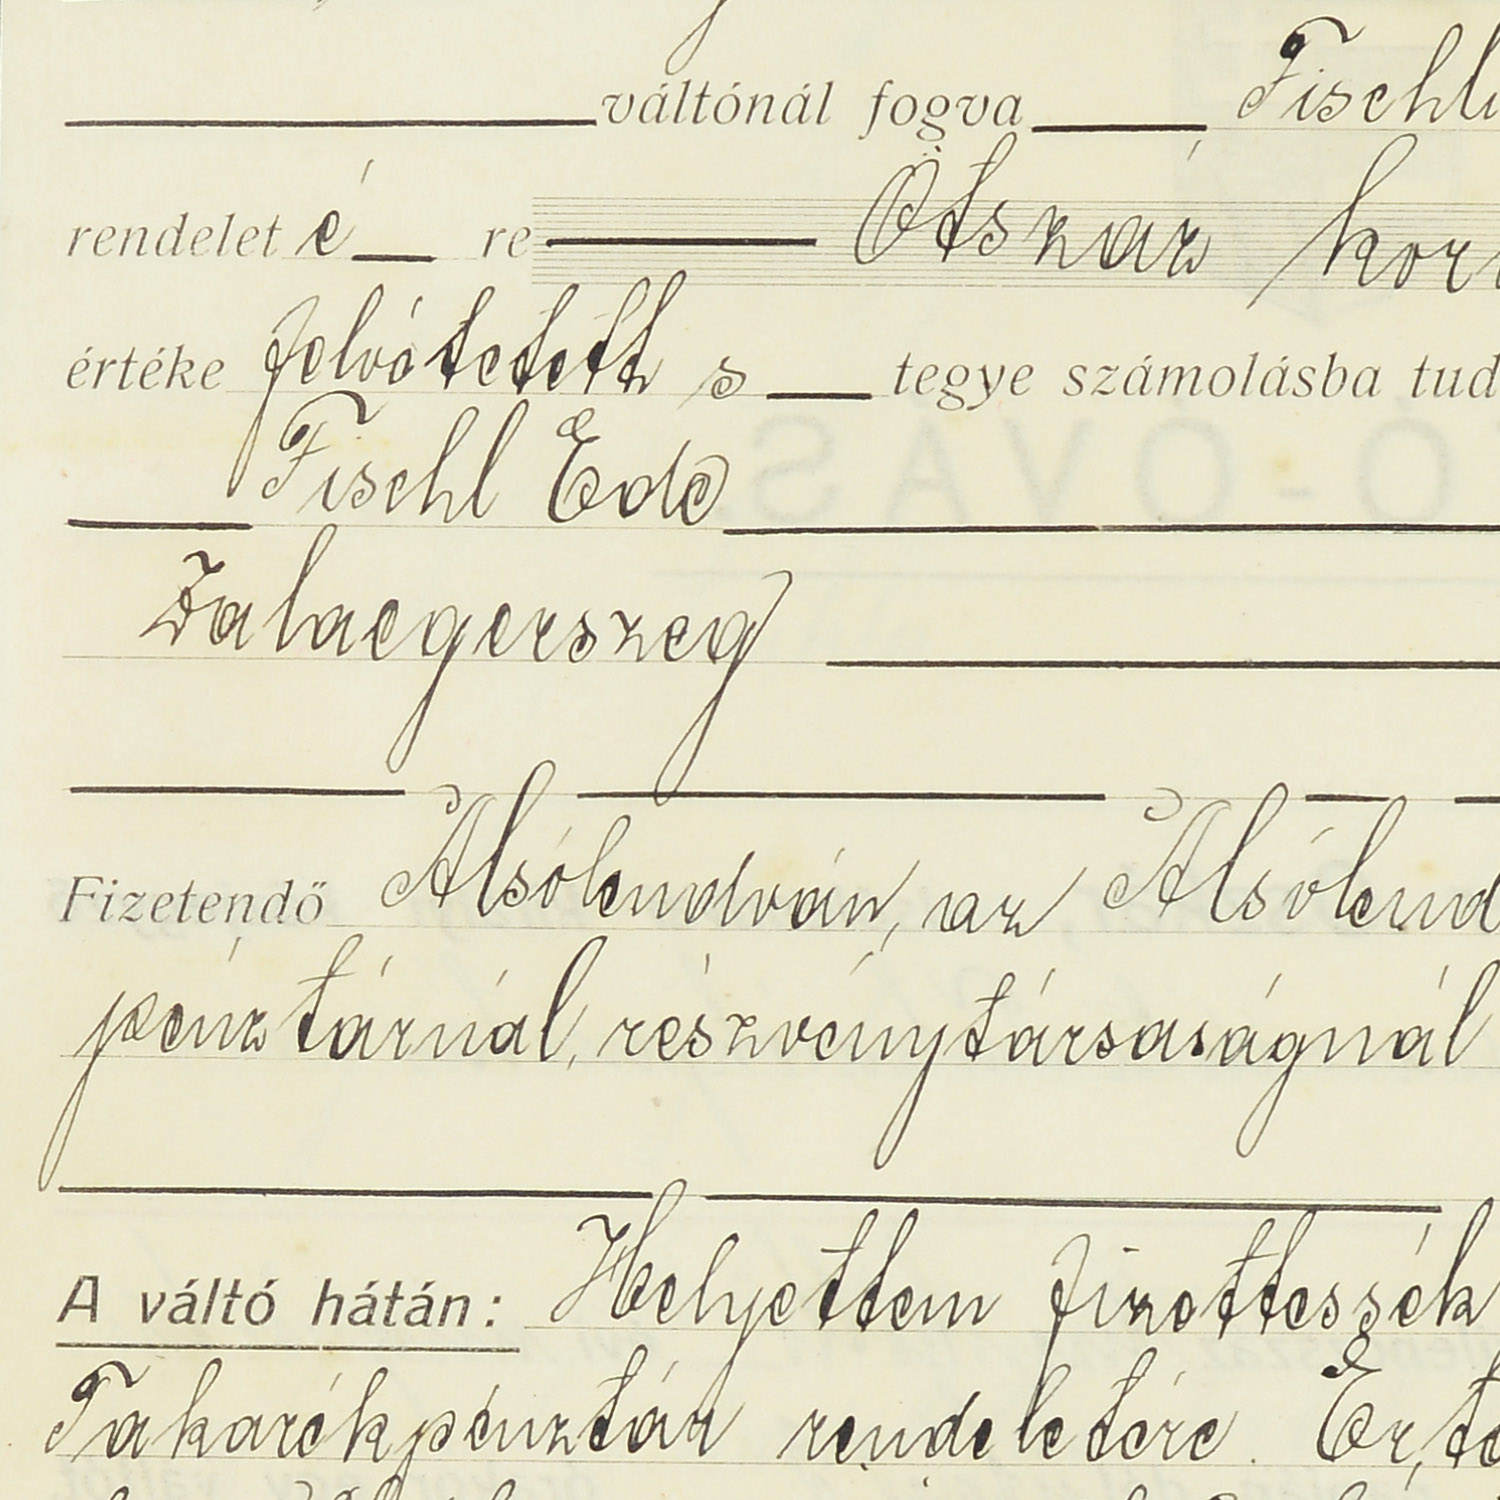 váltónál fogva Fischl
rendelet é re Ötszáz kor
értéke felvétetett s tegye számolásba tud
Fischl Ede
Zalaegerszeg
Fizetendő Alsólendván, az Alsólend
pénztárnál, részvénytársaságnál
A váltó hátán: Helyettem fizettessék
Takarékpénztár rendelétére. Ér,té